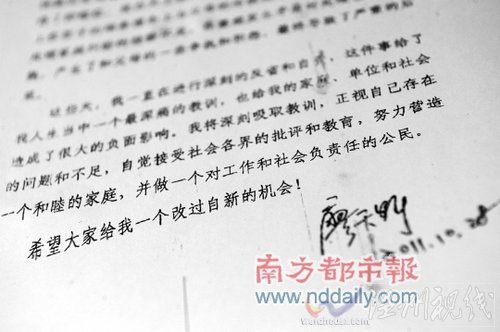 的，产生了和父母的一些争执和积怨，最终导致了严重的后
果。
这些天，我一直在进行深刻的反省和自责，这件事给了
我人生当中一个最深痛的教训，也给我的家庭、单位和社会
造成了很大的负面影响。我将深刻吸取教训，正视自己存在
的问题和不足，自觉接受社会各界的批评和教育，努力营造
一个和睦的家庭，并做一个对工作和社会负责任的公民。
希望大家给我一个改过自新的机会！
廖天野
2011.10.28
南方都市報
www.nddaily.com
温州视线